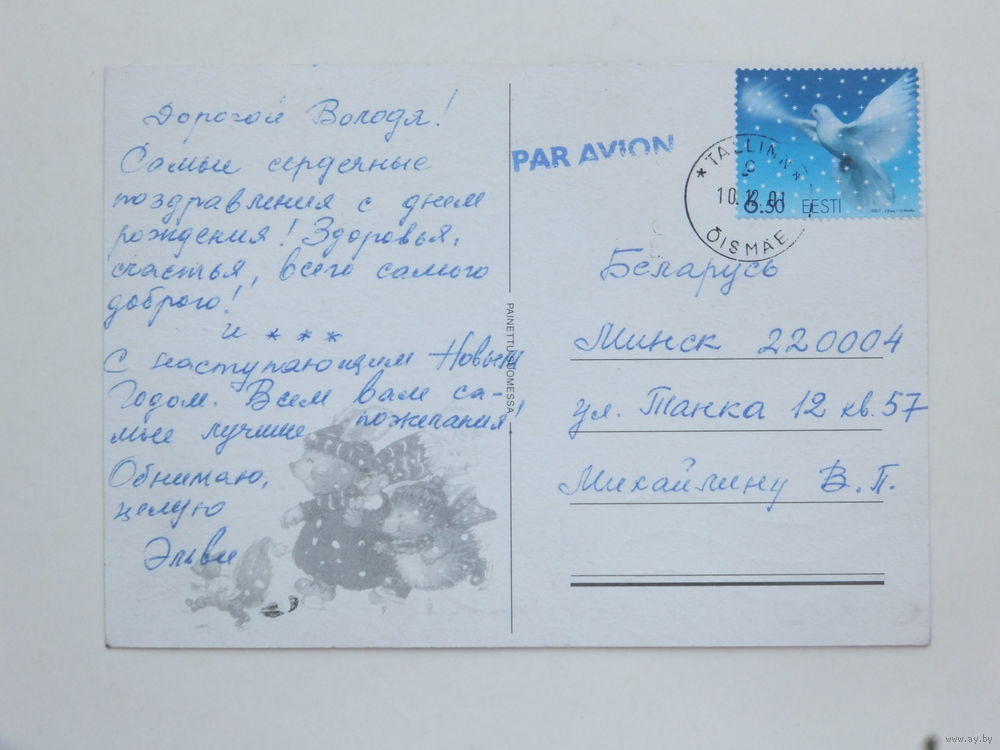 Дорогой Володя!
Самые сердечные
поздравления с днем
рождения! Здоровья,
счастья, всего самого
доброго!
и ***
С наступающим Новым
Годом. Всем вам са-
мые лучшие пожелания!
Обнимаю,
целую
Эльви
PAINETTU SUOMESSA
PAR AVION
TALLINN
9
10.12.01
ÕISMÄE
6.50 EESTI
Беларусь
Минск 220004
ул. Танка 12 кв. 57
Михайлину В.П.
www.ay.by